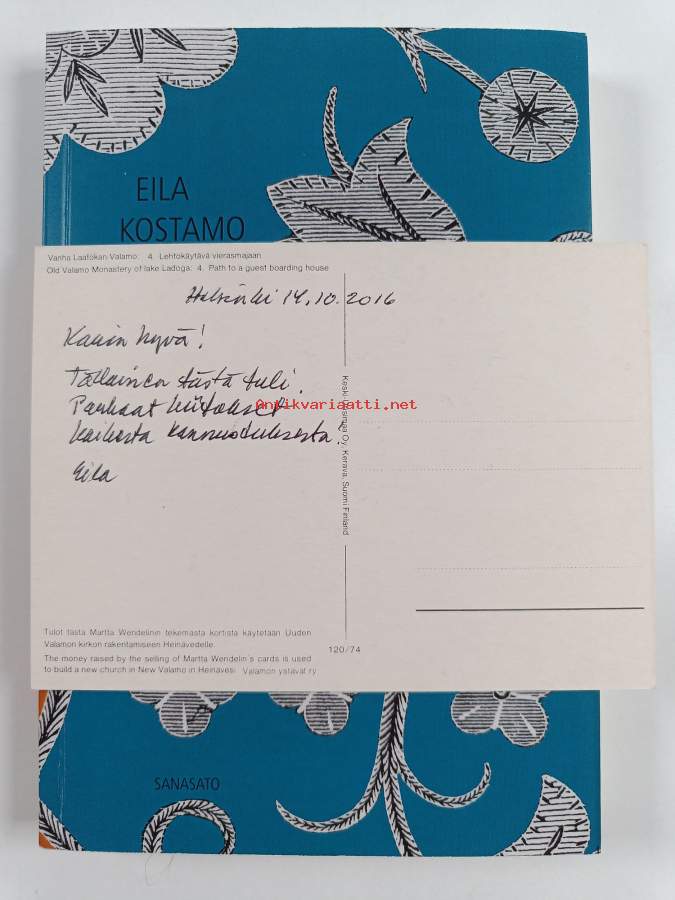 EILA
KOSTAMO
Vanha Laatokan Valamo: 4. Lehtokäytävä vierasmajaan
Old Valamo Monastery of lake Ladoga: 4. Path to a guest boarding house
Helsinki 14.10.2016
Kaisin hyvä!
Tällainen tästä tuli.
Parhaat kiitokset
kaikesta kannustuksesta!
Eila
Antikvariaatti.net
Oy, Kerava, Suomi Finland
Tulot tästä Martta Wendelinin tekemästä kortista käytetään Uuden
Valamon kirkon rakentamiseen Heinävedelle.
The money raised by the selling of Martta Wendelin's cards is used
to build a new church in New Valamo in Heinävesi. Valamon ystävät ry
120/74
SANASATO